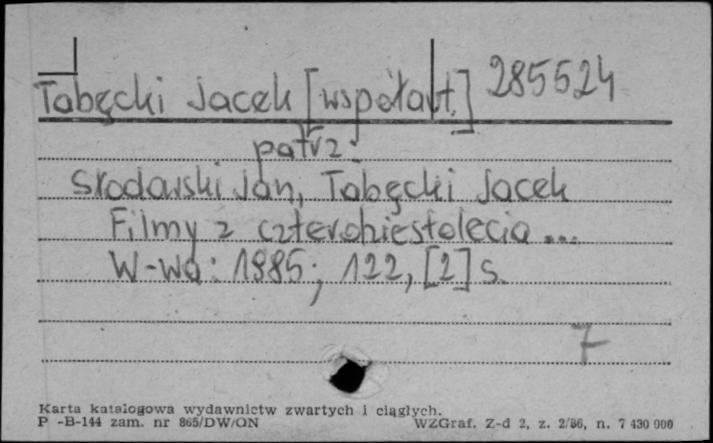 Tabęcki Jacek [współaut.] 285524
patrz:
Srodawski Jan, Tabęcki Jacek
Filmy z czterdziestolecia ...
W-wa: 1985; 122, [2] s.
7
Karta katalogowa wydawnictw zwartych i ciągłych.
P -B-144 zam. nr 865/DW/ON WZGraf. Z-d 2, z. 2/86, n. 7 430 000